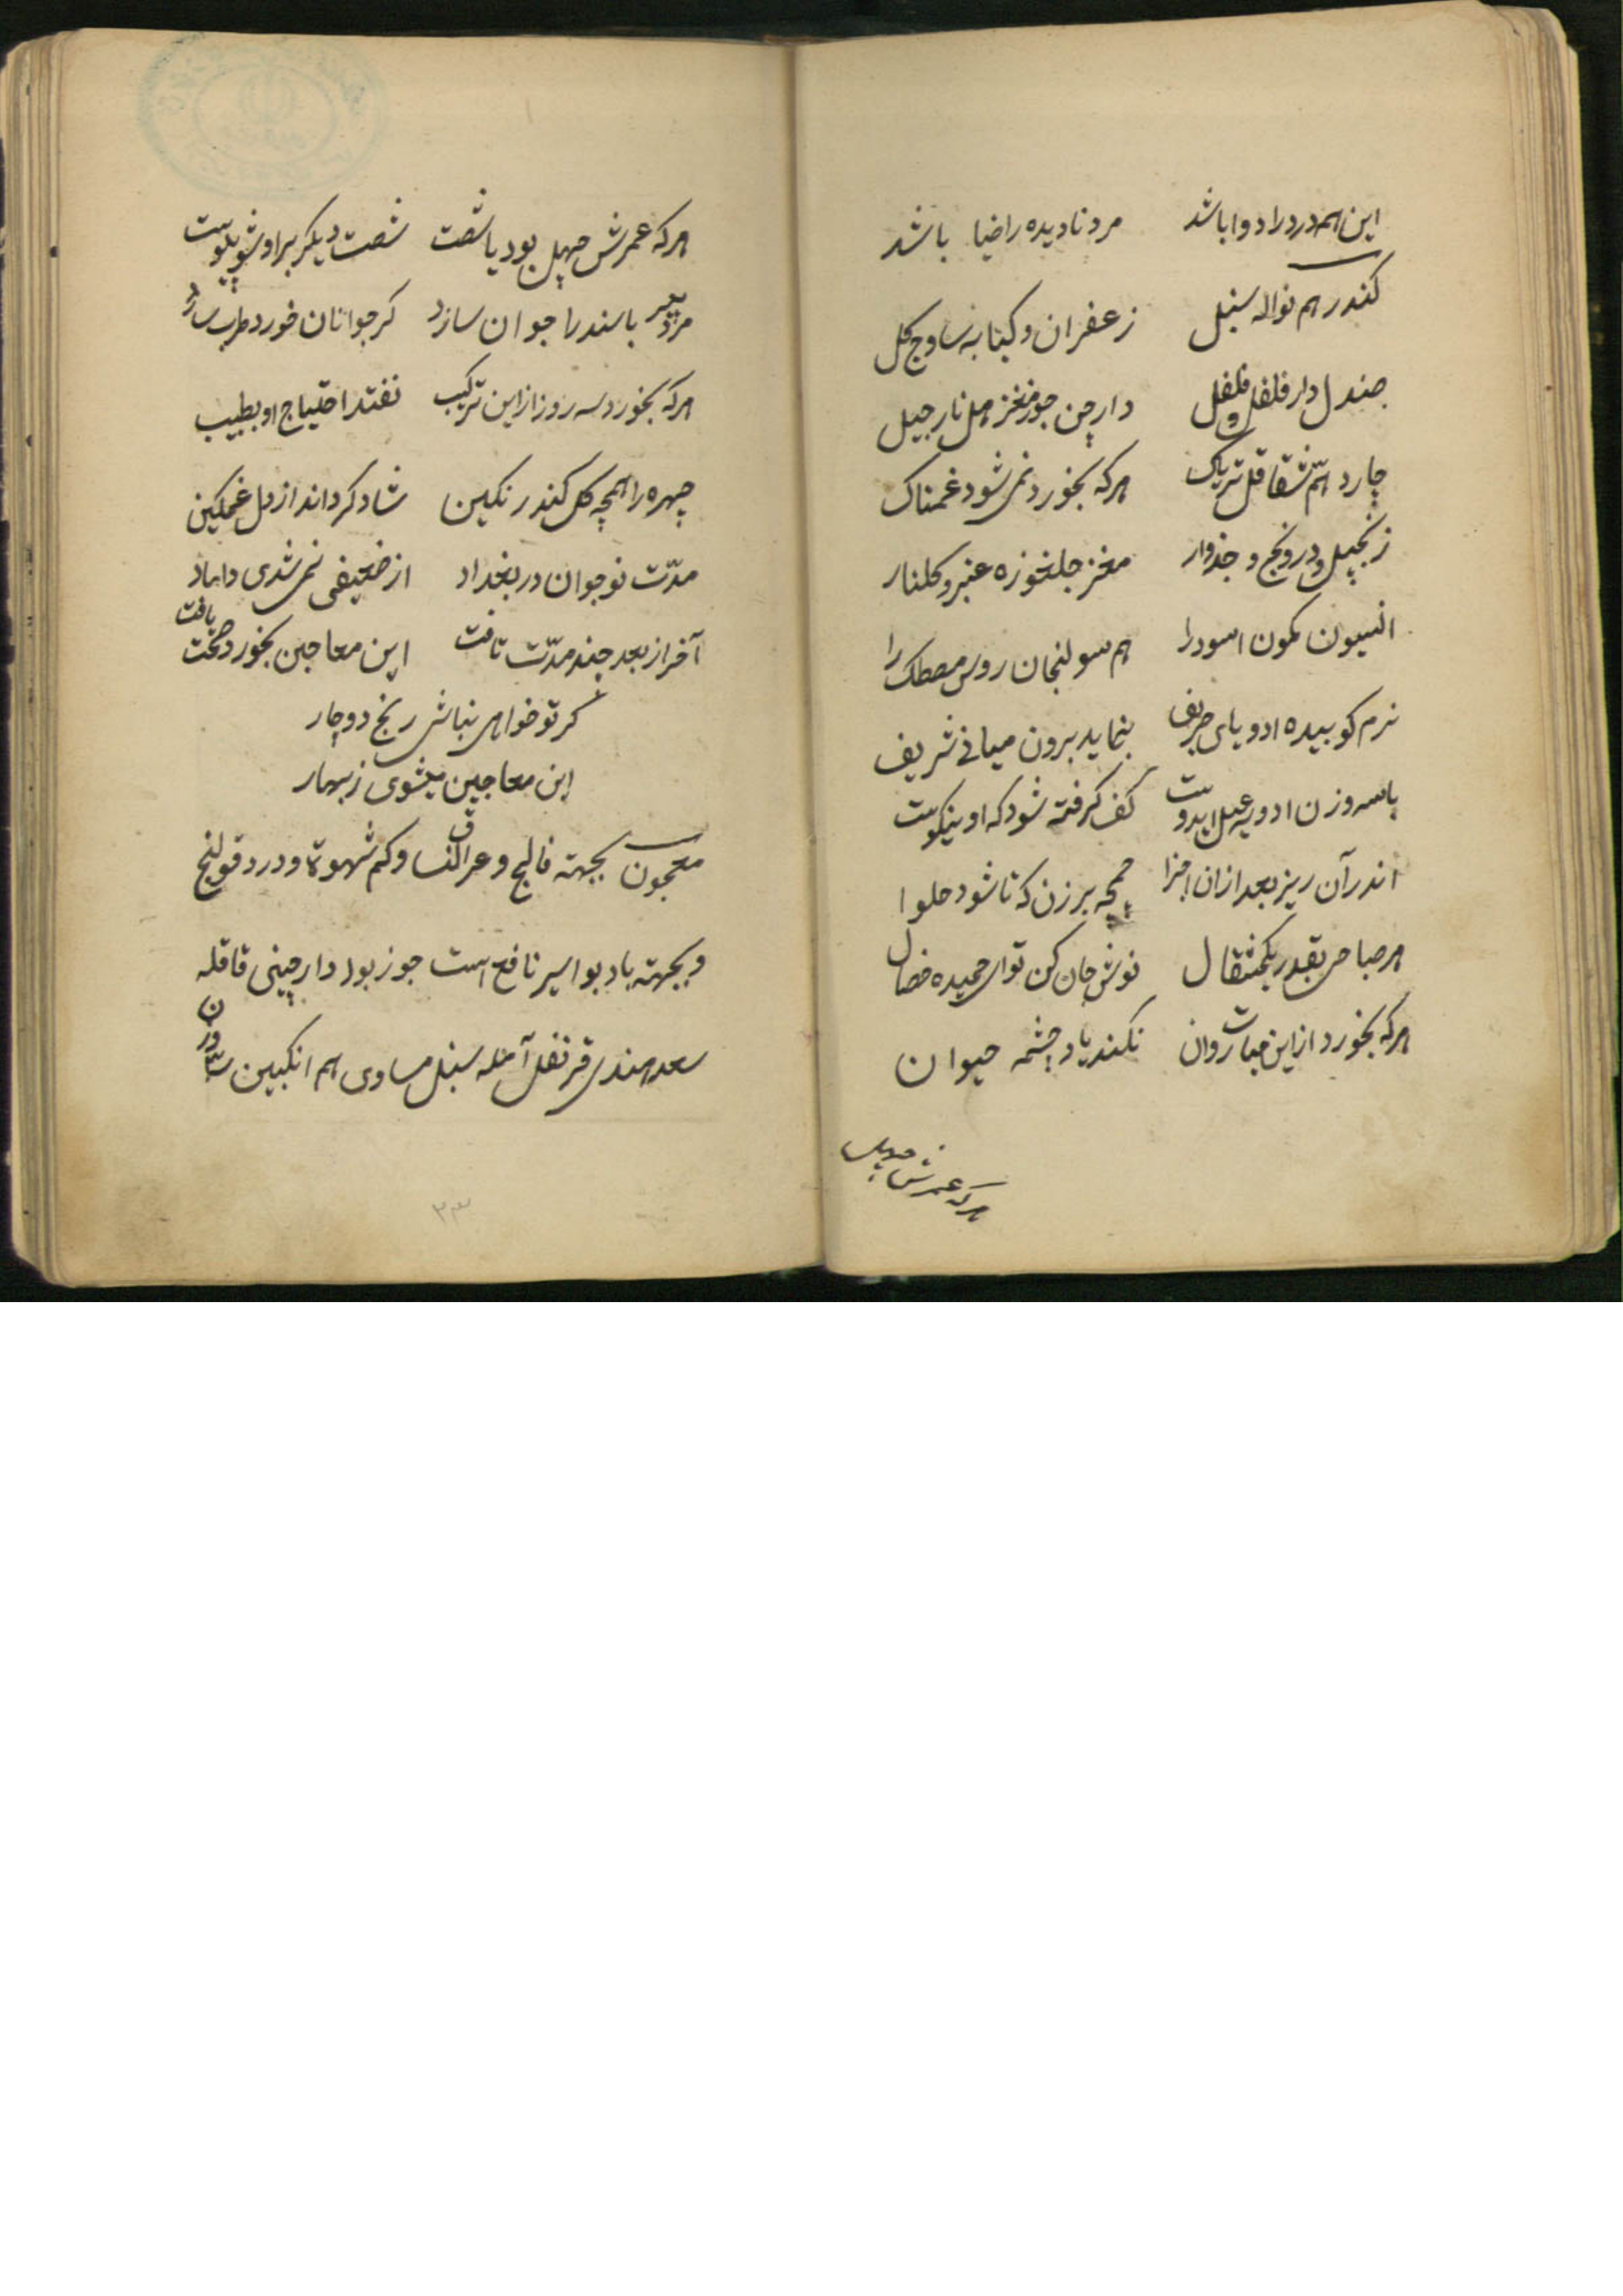 این همه درد را دوا باشد مرد نادیده را ضیا باشد
کندر هم نواله سنبل زعفران و کبابه ساوج گل
صندل دار فلفل و فلفل دارچن جوز مغز هل نارجیل
چارد هم شقاقل تریاک هر که بخورد نمی شود غمناک
زنجبیل و درونج و جذوار مغز جلغوزه عنبر و گلنار
انسیون کمون اسود را هم سولنجان روس مصطک را
نرم کوبیده ادویای حریف بنماید برون میانی شریف
باسه وزن ادویه عسل ایدوست کف گرفته شود که او نیکوست
اندر آن ریز بعد از ان اجزا چمچه بر زن که تا شود حلوا
هر صباحی بقدر یکمثقال نوش جان کن تو ای حمیده خصال
هر که بخورد از این نبات روان نکند یاد چشمه حیوان
هر که عمرش چهل
هر که عمرش چهل بود یا شصت شصت دیگر بر او شو پیوست
مرد پیر باسند را جوان سازد کر جوانان خورد طرب سازد
هر که بخورد سه روز از این ترکیب نفتد احتیاج او بطبیب
چهره را همچه گل کند رنکین شاد کرداند از دل غمکین
مدّت نوجوان در بغداد از ضعیفی نمی شدی داماد
آخر از بعد چند مدّت تافت این معاجین بخورد صحت یافت
کر تو خواهی نباشی رنج دوچار
این معاجین میشوی زبهار
معجون بجهته فالج و عراق النسا و کم شهوة و درد قولنج
و بجهته باد بواسیر نافع است جوز بودا دارچینی قاقله
سعد هندی قرنفل آمله سنبل مساوی هم انکبین سه وزن
۳۳